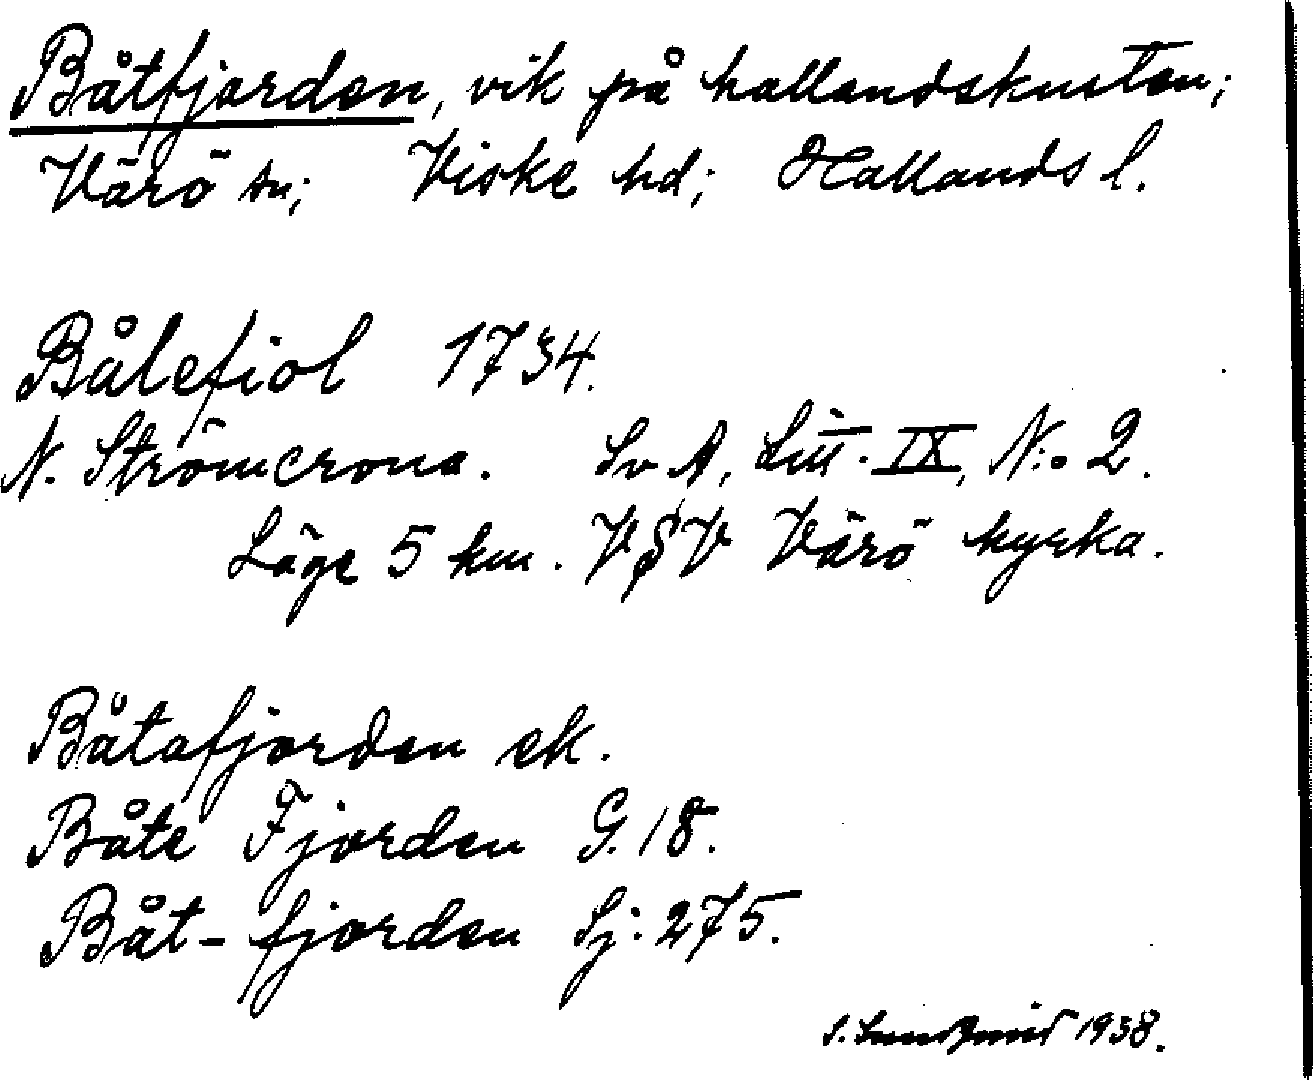 Båtfjorden, vik på hallandskusten;
Värö sn; Viske hd; Hallands l.
Bålefiol 1734.
N. Strömcrona. Sv A, Litt. IX, N:o 2.
Läge 5 km. VSV Värö kyrka.
Båtafjorden ek.
Båte Fjorden G. 18.
Båt-fjorden Sj: 275.
S. 1938.